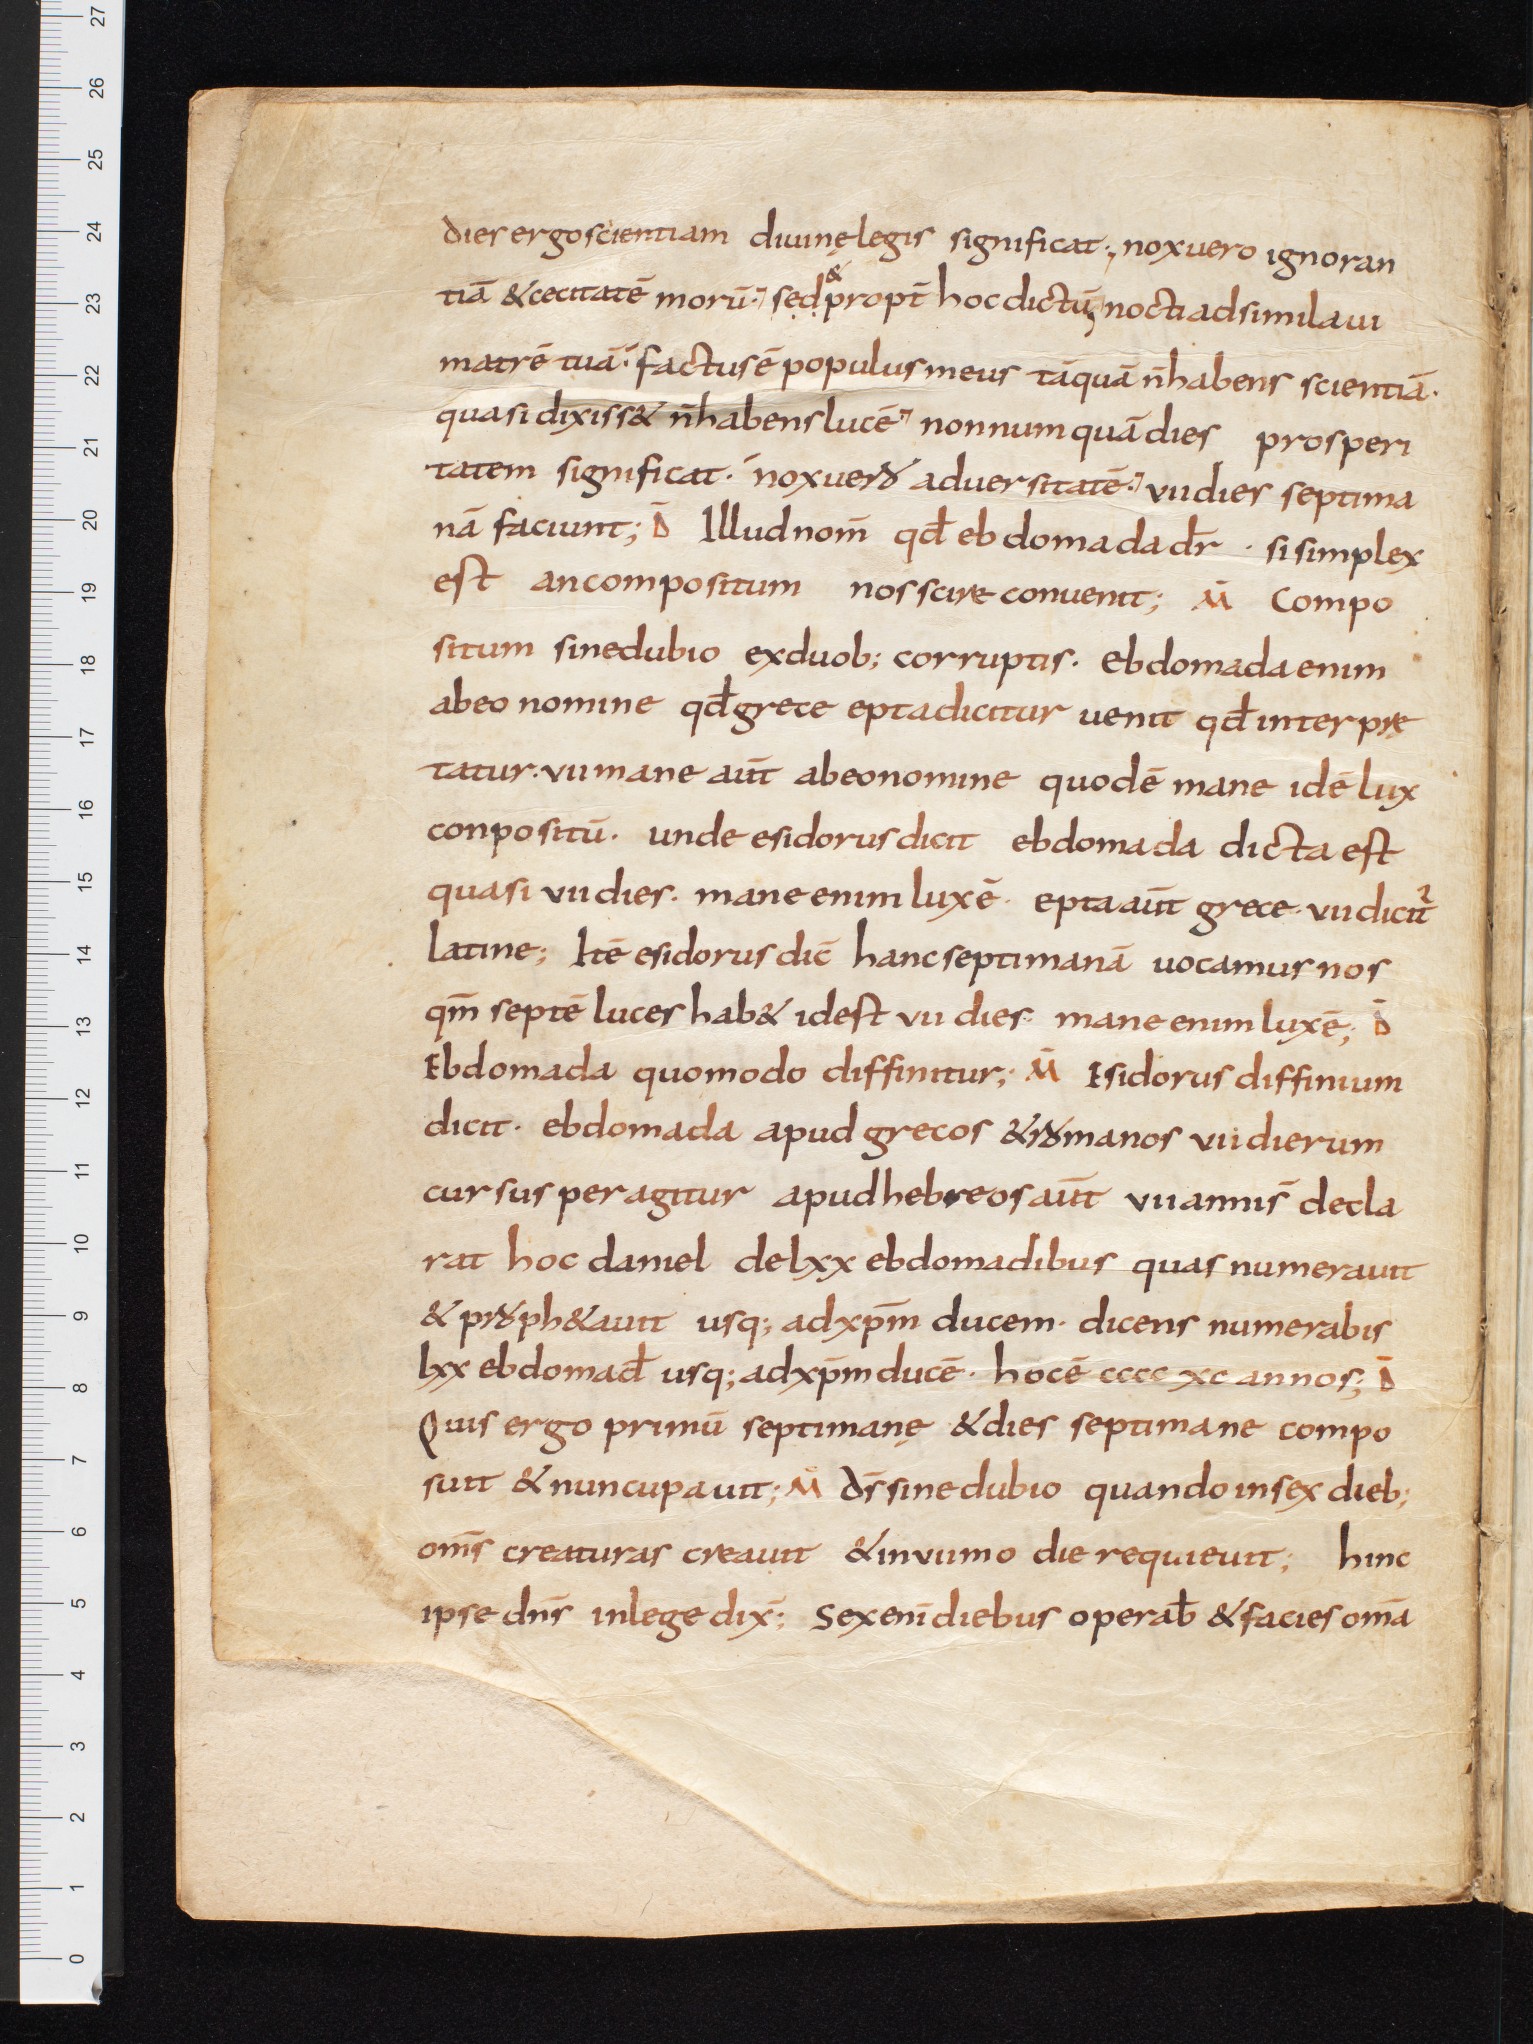 dies ergo scientiam diuinę legis significat; nox uero ignoran
tiā & cecitatē morū. sed & propt̄ hoc dictū nocti adsimilaui
matrē tuā. factus ē populus meus tāquā n̄ habens scientiā.
quasi dixiss& n̄ habens lucē nonnumquā dies prosperi
tatem significat. nox uero aduersitatē. vii dies septima
nā faciunt; D̄ Illud nom̄ qđ ebdomada dr̄. si simplex
est an compositum nos scire conuenit; M̄ Compo
situm sine dubio ex duob; corruptis. ebdomada enim
ab eo nomine qđ grece epta dicitur uenit qđ interpre
tatur. vii mane aūt ab eo nomine quod ē mane id ē lux
conpositū. unde esidorus dicit ebdomada dicta est
quasi vii dies. mane enim lux ē. epta aūt grece. vii dicit᷑
latine; Itē esidorus dic̄ hanc septimanā uocamus nos
qm̄ septē luces hab& id est vii dies mane enim lux ē; D̄
Ebdomada quomodo diffinitur; M̄ Esidorus diffinium
dicit. ebdomada apud grecos & romanos vii dierum
cursus peragitur apud hebreos aūt vii annis̄ decla
rat hoc daniel de lxx ebdomadibus quas numerauit
& proph&auit usq; ad xp̄m ducem. dicens numerabis
lxx ebdomađ usq; ad xp̄m ducē. hoc ē cccc xc annos; D̄
Quis ergo primū septimanę & dies septimane compo
suit & nuncupauit; M̄ ds̄ sine dubio quando in sex dieb;
om̄s creaturas creauit & in viimo die requieuit; hinc
ipse dn̄s in lege dix̄; Sex enī diebus operab̄ & facies om̄a
27
26
25
24
23
22
21
20
19
18
17
16
15
14
13
12
11
10
9
8
7
6
5
4
3
2
1
0